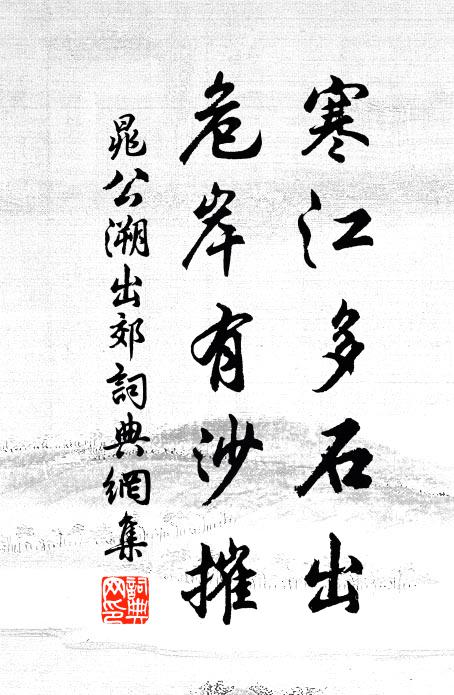 寒江多石出
危岸有沙摧
晁公溯出郊詞典網集
詞典網印